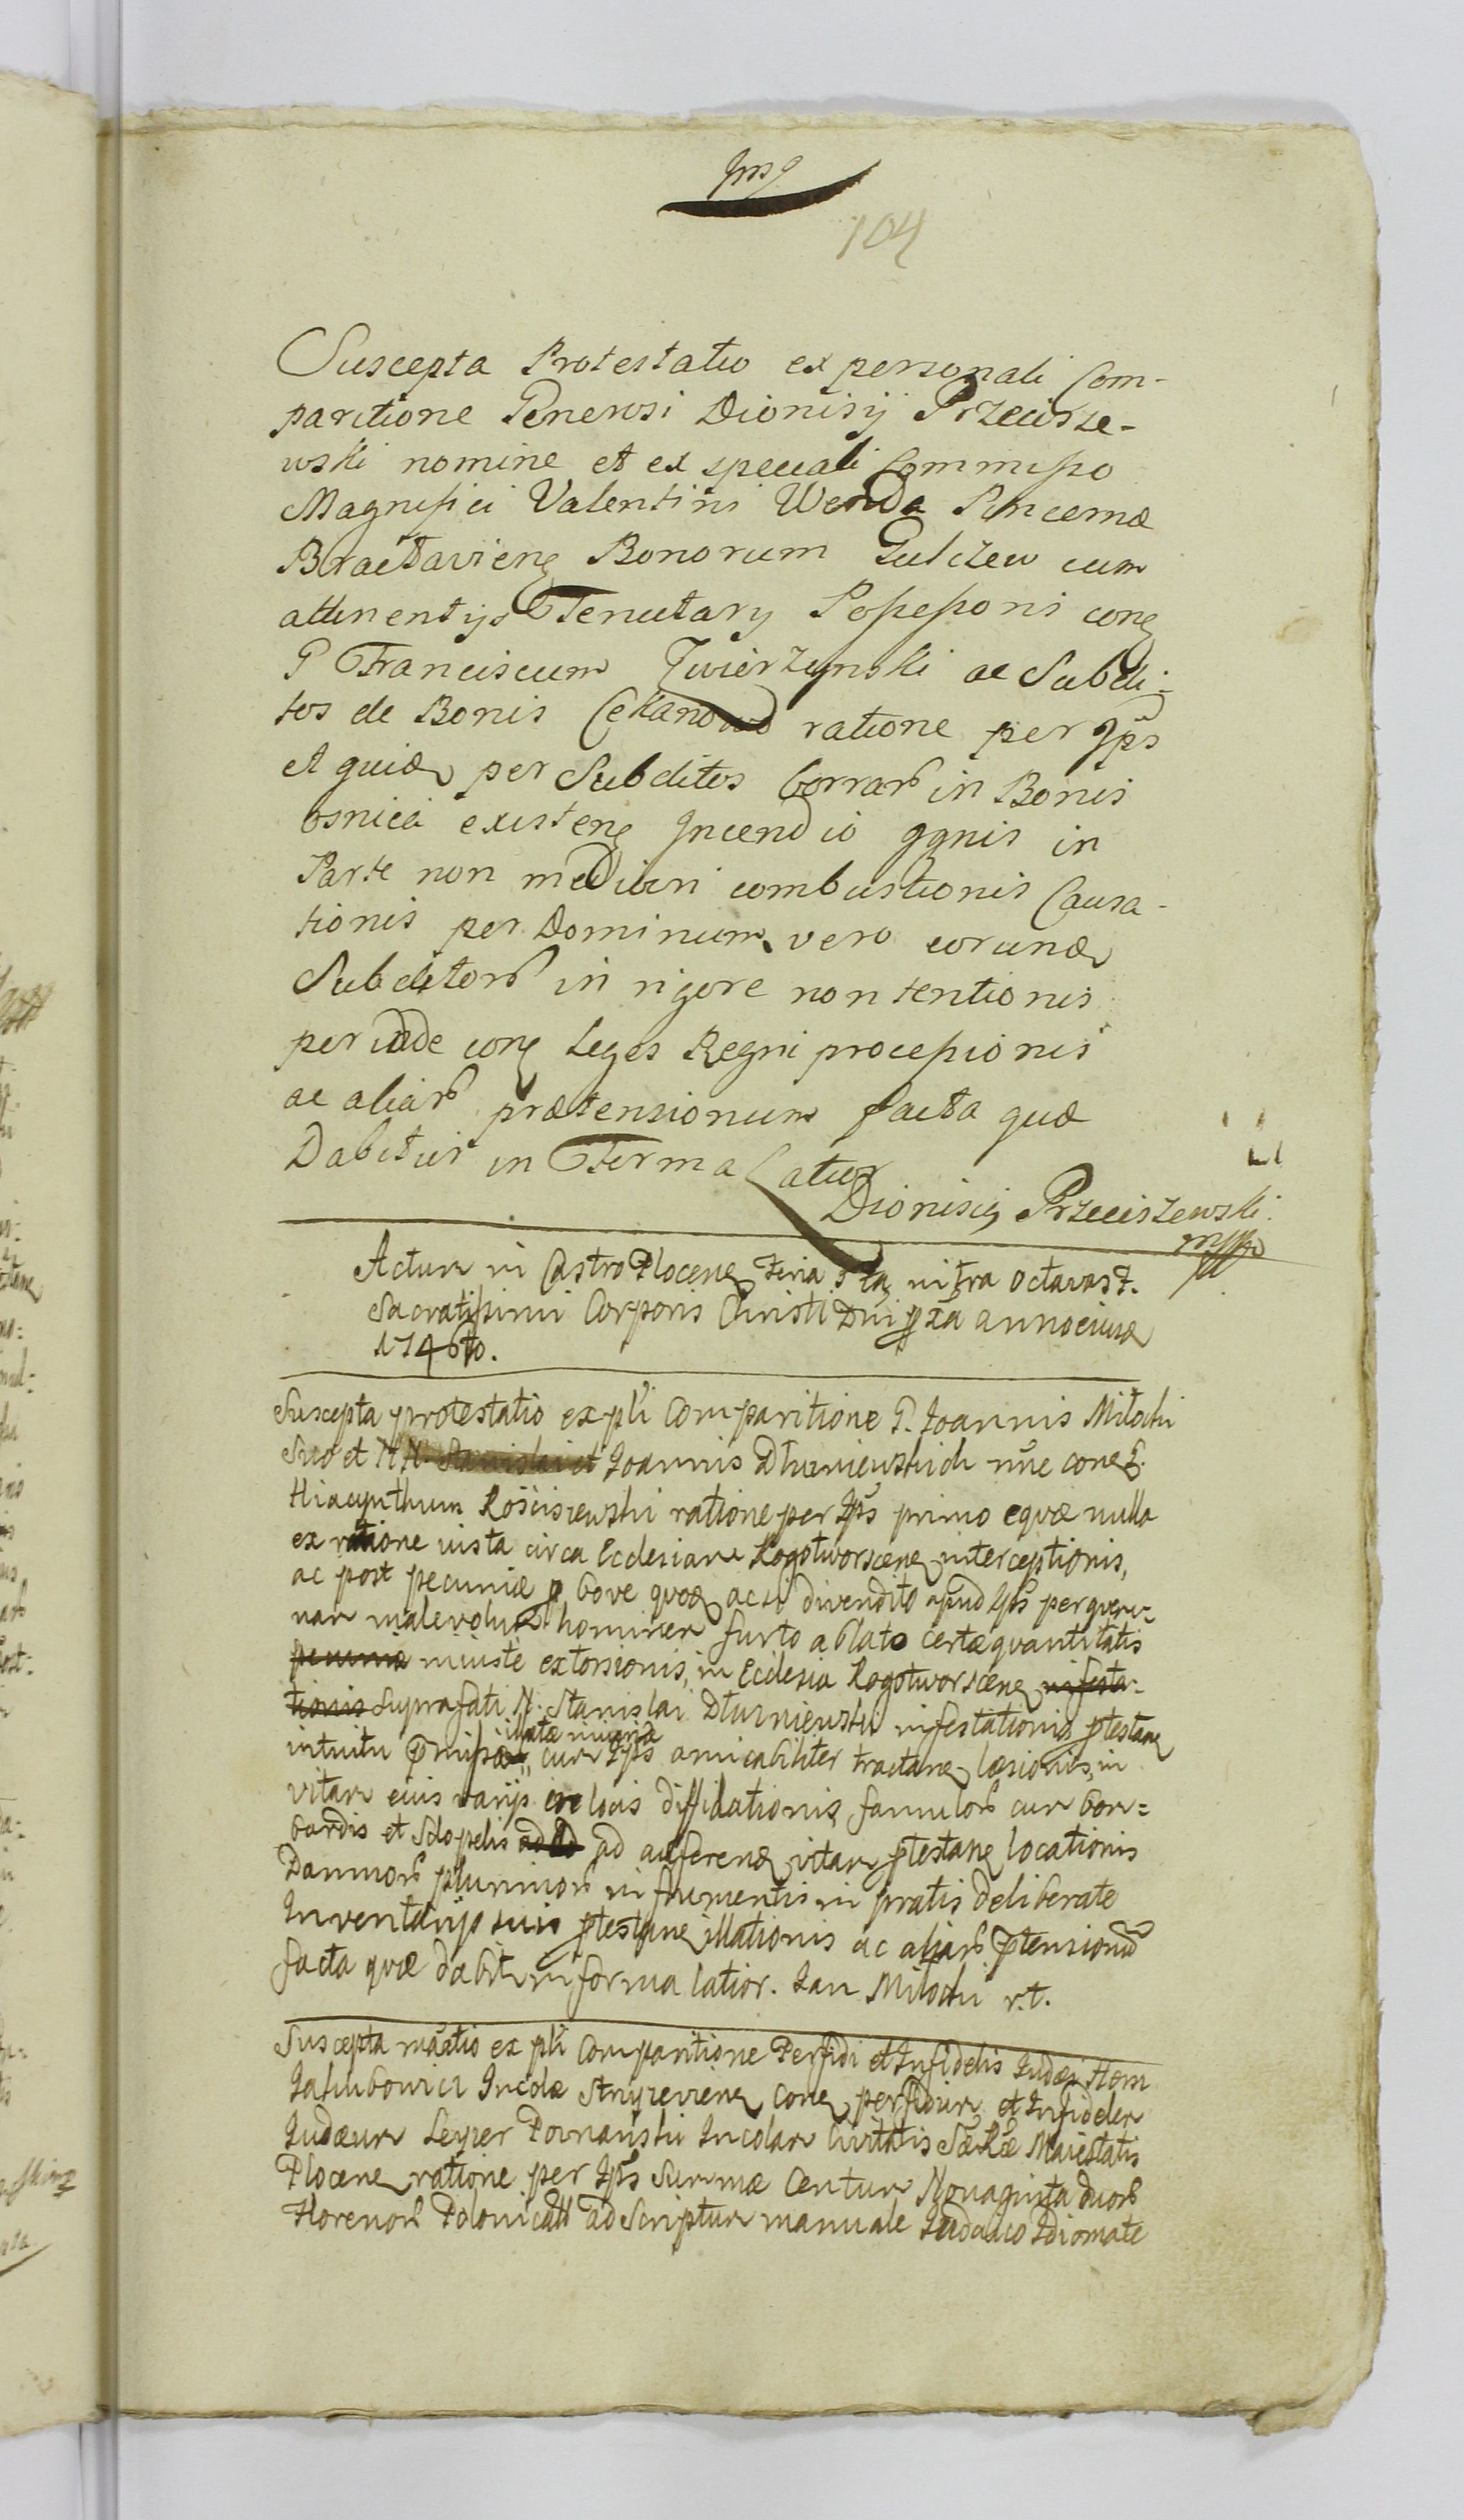 104
Suscepta Protestatio ex personali Com-
paritione Generosi Dionisij Przecisze-
wski nomine et ex speciali Commisso
Magnifici Valentini Wenda Pincernæ
Braclavieng Bonorum Gulczew cum
attinentijs Tenutarij Possessoris cong
G Franciscum Zwierzynski ac Subdi-
tos de Bonis Cekanowo ratione per Ips
et quidem per Subditos borrar in Bonis
osnica existeng Incendio Ignis in
Parte non mediocri combustionis Causa-
tionis per Dominum vero eorund
Subditor in rigore non tentionis
perinde cong Leges Regni processionis
ac aliar prætensionum facta quæ
Dabitur in Forma Latior
Dionisij Przeciszewski
mpp
Actum in Castro Ploceng Feria 3tia intra Octavas F.
Sacratissimi Corporis Christi Dni pxa anno eius
1746to.
Suscepta protestatio ex pli Comparitione G. Joannis Milochi
Suo et M N. Joannis Dłuniewskich nne cong G.
Hiacynthum Kościszewski ratione per Ips primo equæ nulla
ex ratione iusta circa Ecclesiam Rogotworsceng interceptionis,
ac post pecuniæ p bove quoq acsi divendito apud Ips per quem-
nam malevolum hominem furto ablato certæ quantitatis
pecuniæ iniuste extorsionis, in Ecclesia Rogotworsceng infesta-
tionis Suprafati N. Stanislai Dłuniewski infestationis ptestang
illatæ iniuriæ
intuitu pmissæ cum Ips amicabiliter tractang læsionis, in
vitam eius varijs in locis diffidationis famulor cum bom-
bardis et Sclopetis ad ad auferend vitam ptestang locationis
Damnor plurimor in frumentis in pratis deliberate
Inventarijs suis ptestang illationis ac aliar ptensionu
facta quæ dabitur in forma latior. Jan Milochi r.t.
Suscepta mãatio ex pli Comparitione Perfidi et Infidelis Judæi Hom
Jakubowicz Incolæ Stryieviens Cong perfidum et Infidelem
Judæum Leyzer Poznanski Incolam Civitatis SæRæ Maiestatis
Ploceng ratione per Ips Summæ Centum Nonaginta duor
Florenor Polonicall ad Scriptum manuale Judaico Idiomate